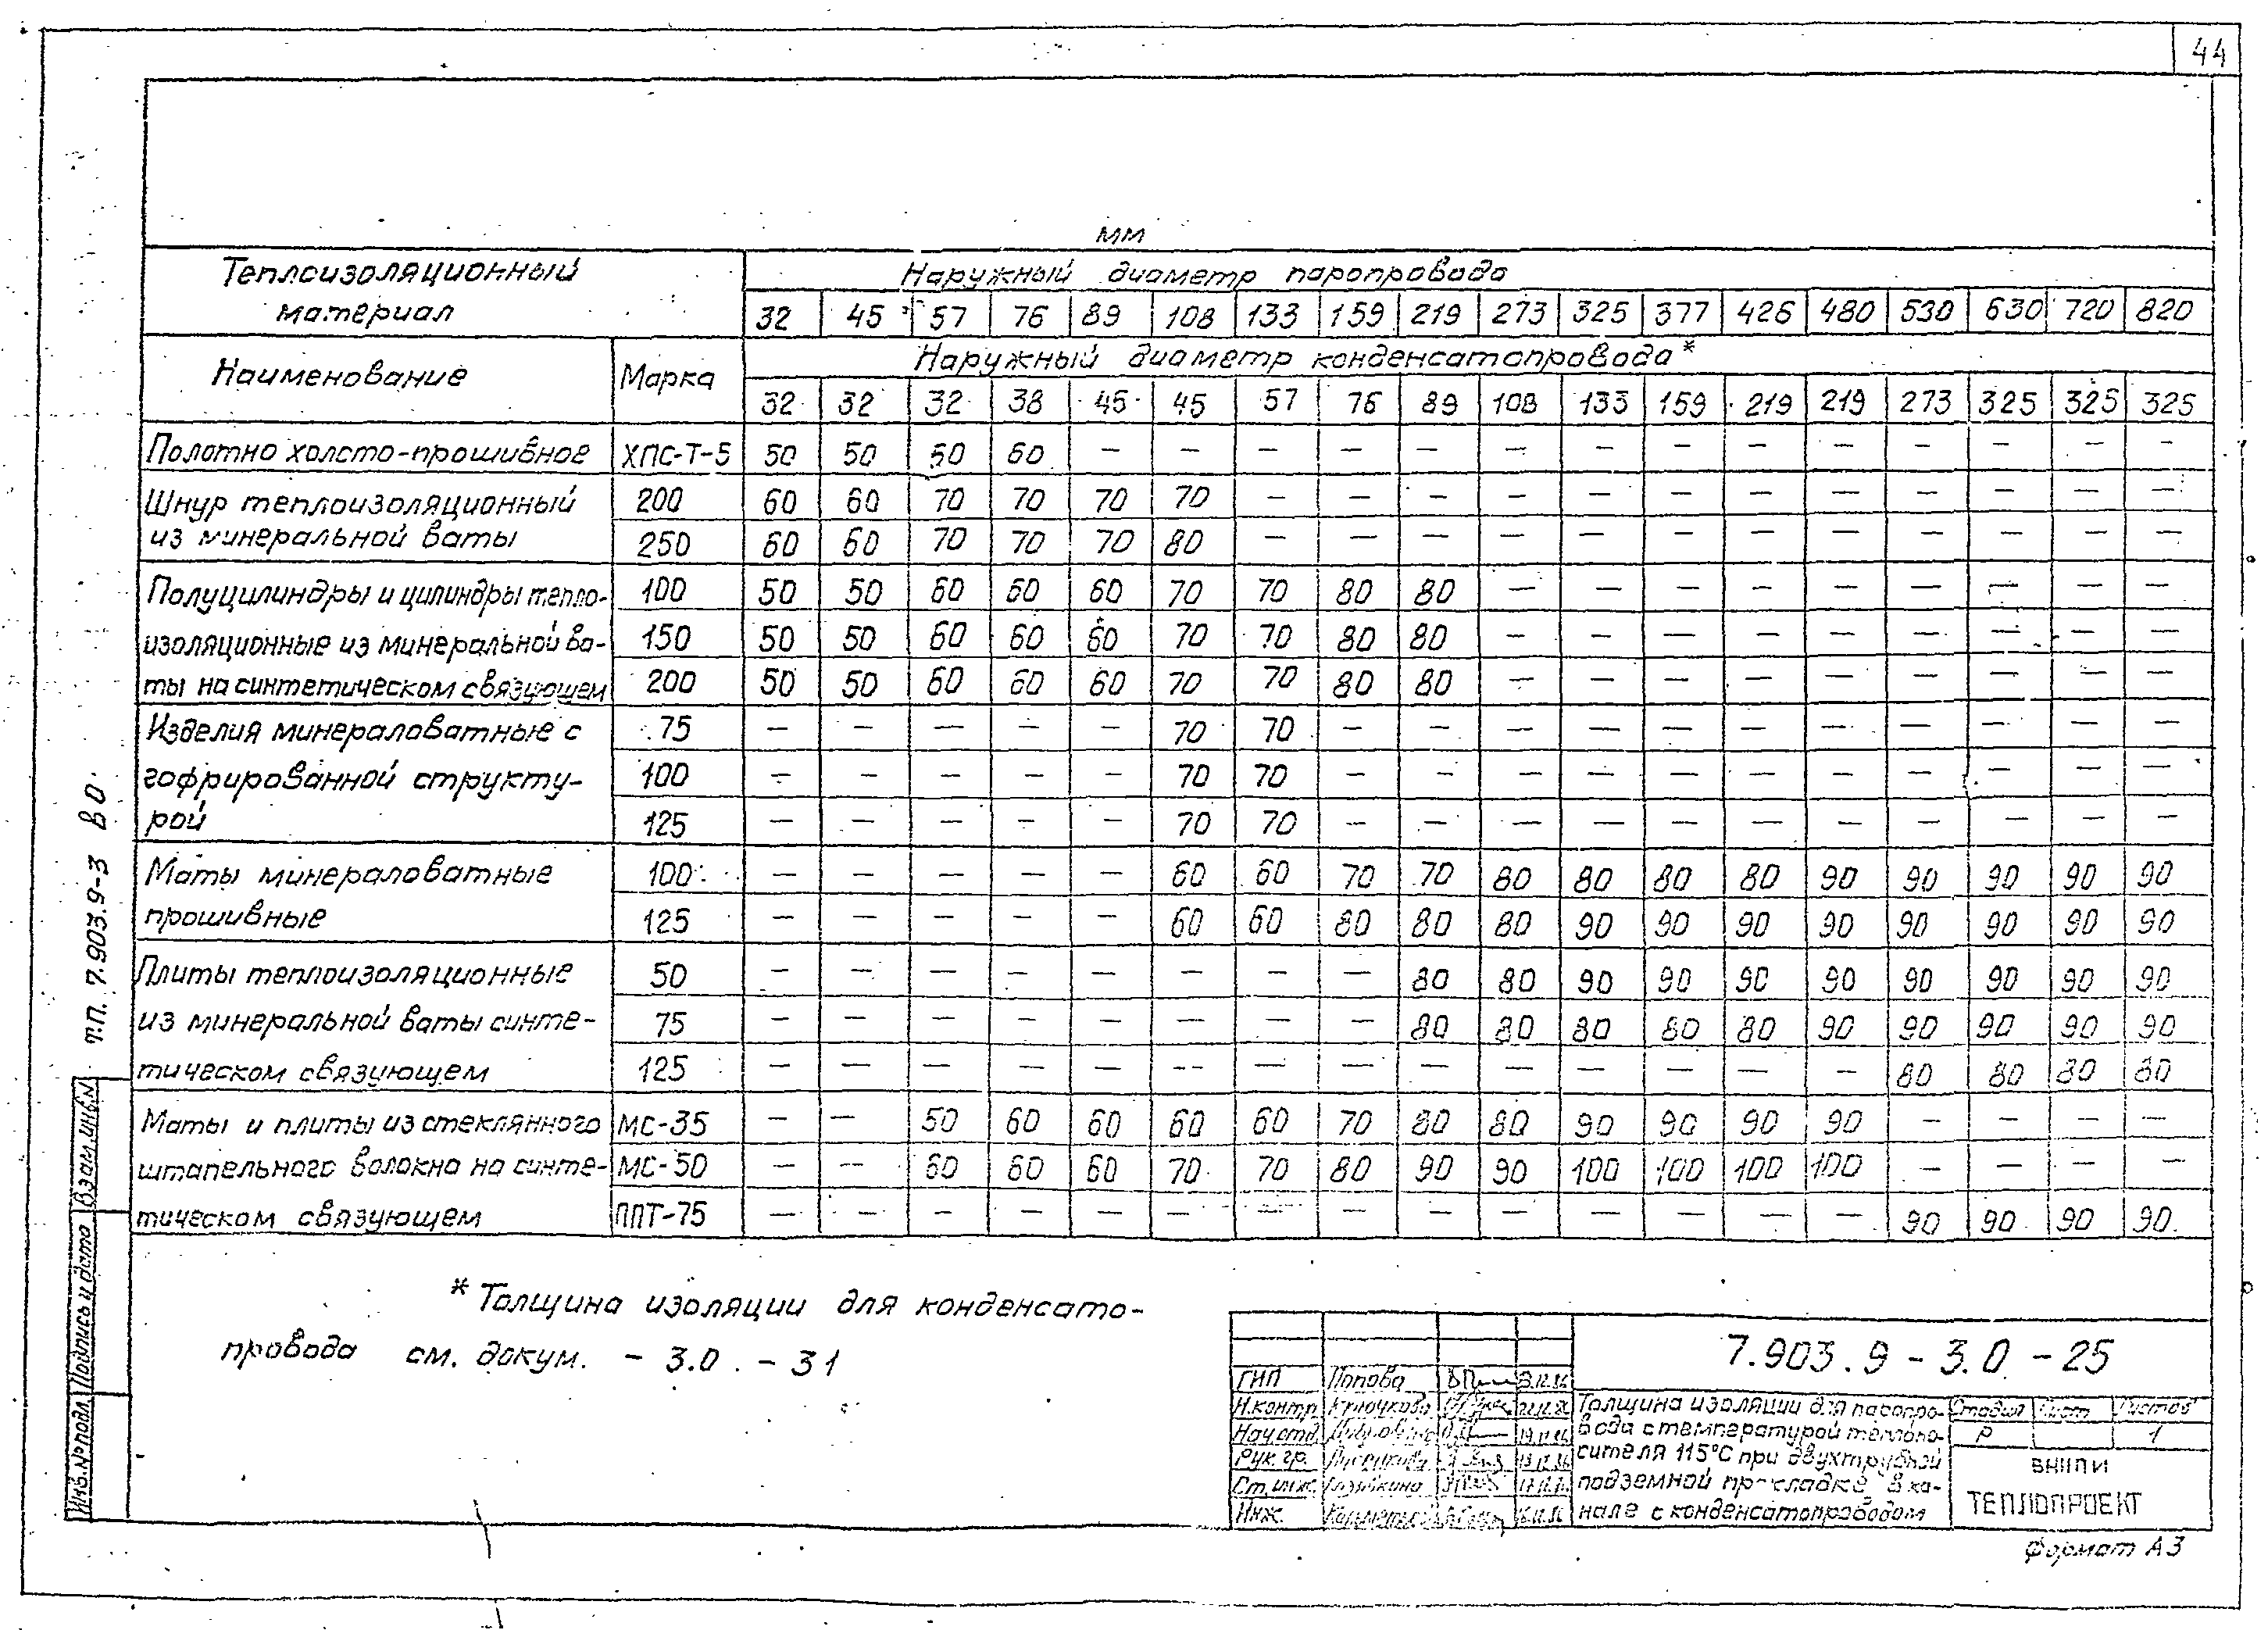 44
мм
Теплоизоляционный материал
Наружный диаметр паропровода
32 45 57 76 89 108 133 159 219 273 325 377 426 480 530 630 720 820
Наименование Марка
Наружный диаметр конденсатопровода*
32 32 32 38 45 45 57 76 89 108 133 159 219 219 273 325 325 325
Полотно холсто-прошивное ХПС-Т-5 50 50 50 60 — — — — — — — — — — — — — —
Шнур теплоизоляционный 200 60 60 70 70 70 70 — — — — — — — — — — — —
из минеральной ваты 250 60 60 70 70 70 80 — — — — — — — — — — — —
Полуцилиндры и цилиндры тепло- 100 50 50 60 60 60 70 70 80 80 — — — — — — — — —
изоляционные из минеральной ва- 150 50 50 60 60 60 70 70 80 80 — — — — — — — — —
ты на синтетическом связующем 200 50 50 60 60 60 70 70 80 80 — — — — — — — — —
Изделия минераловатные с 75 — — — — — 70 70 — — — — — — — — — — —
гофрированной структу- 100 — — — — — 70 70 — — — — — — — — — — —
рой 125 — — — — — 70 70 — — — — — — — — — — —
Маты минераловатные 100 — — — — — 60 60 70 70 80 80 80 80 90 90 90 90 90
прошивные 125 — — — — — 60 60 80 80 80 90 90 90 90 90 90 90 90
Плиты теплоизоляционные 50 — — — — — — — — 80 80 90 90 90 90 90 90 90 90
из минеральной ваты синте- 75 — — — — — — — — 80 80 80 80 80 90 90 90 90 90
тическом связующем 125 — — — — — — — — — — — — — — 80 80 80 80
Маты и плиты из стеклянного МС-35 — — 50 60 60 60 60 70 80 80 90 90 90 90 — — — —
штапельного волокна на синте- МС-50 — — 60 60 60 70 70 80 90 90 100 100 100 100 — — — —
тическом связующем ППТ-75 — — — — — — — — — — — — — — 90 90 90 90
* Толщина изоляции для конденсато-
провода см. докум. - 3.0. - 31
Т.П. 7.903.9-3 В 0
Взам.инв.N
Подпись и дата
Инв.№ подл.
7.903.9 - 3.0 - 25
ГИП Попова
Н.контр. Крючкова
Нач.отд.
Рук. гр.
Ст.инж.
Инж.
Толщина изоляции для паропро-
вода с температурой теплоно-
сителя 115°С при двухтрубной
подземной прокладке в ка-
нале с конденсатопроводом
Стадия Лист Листов
Р 1
ВНИПИ
ТЕПЛОПРОЕКТ
Формат А3